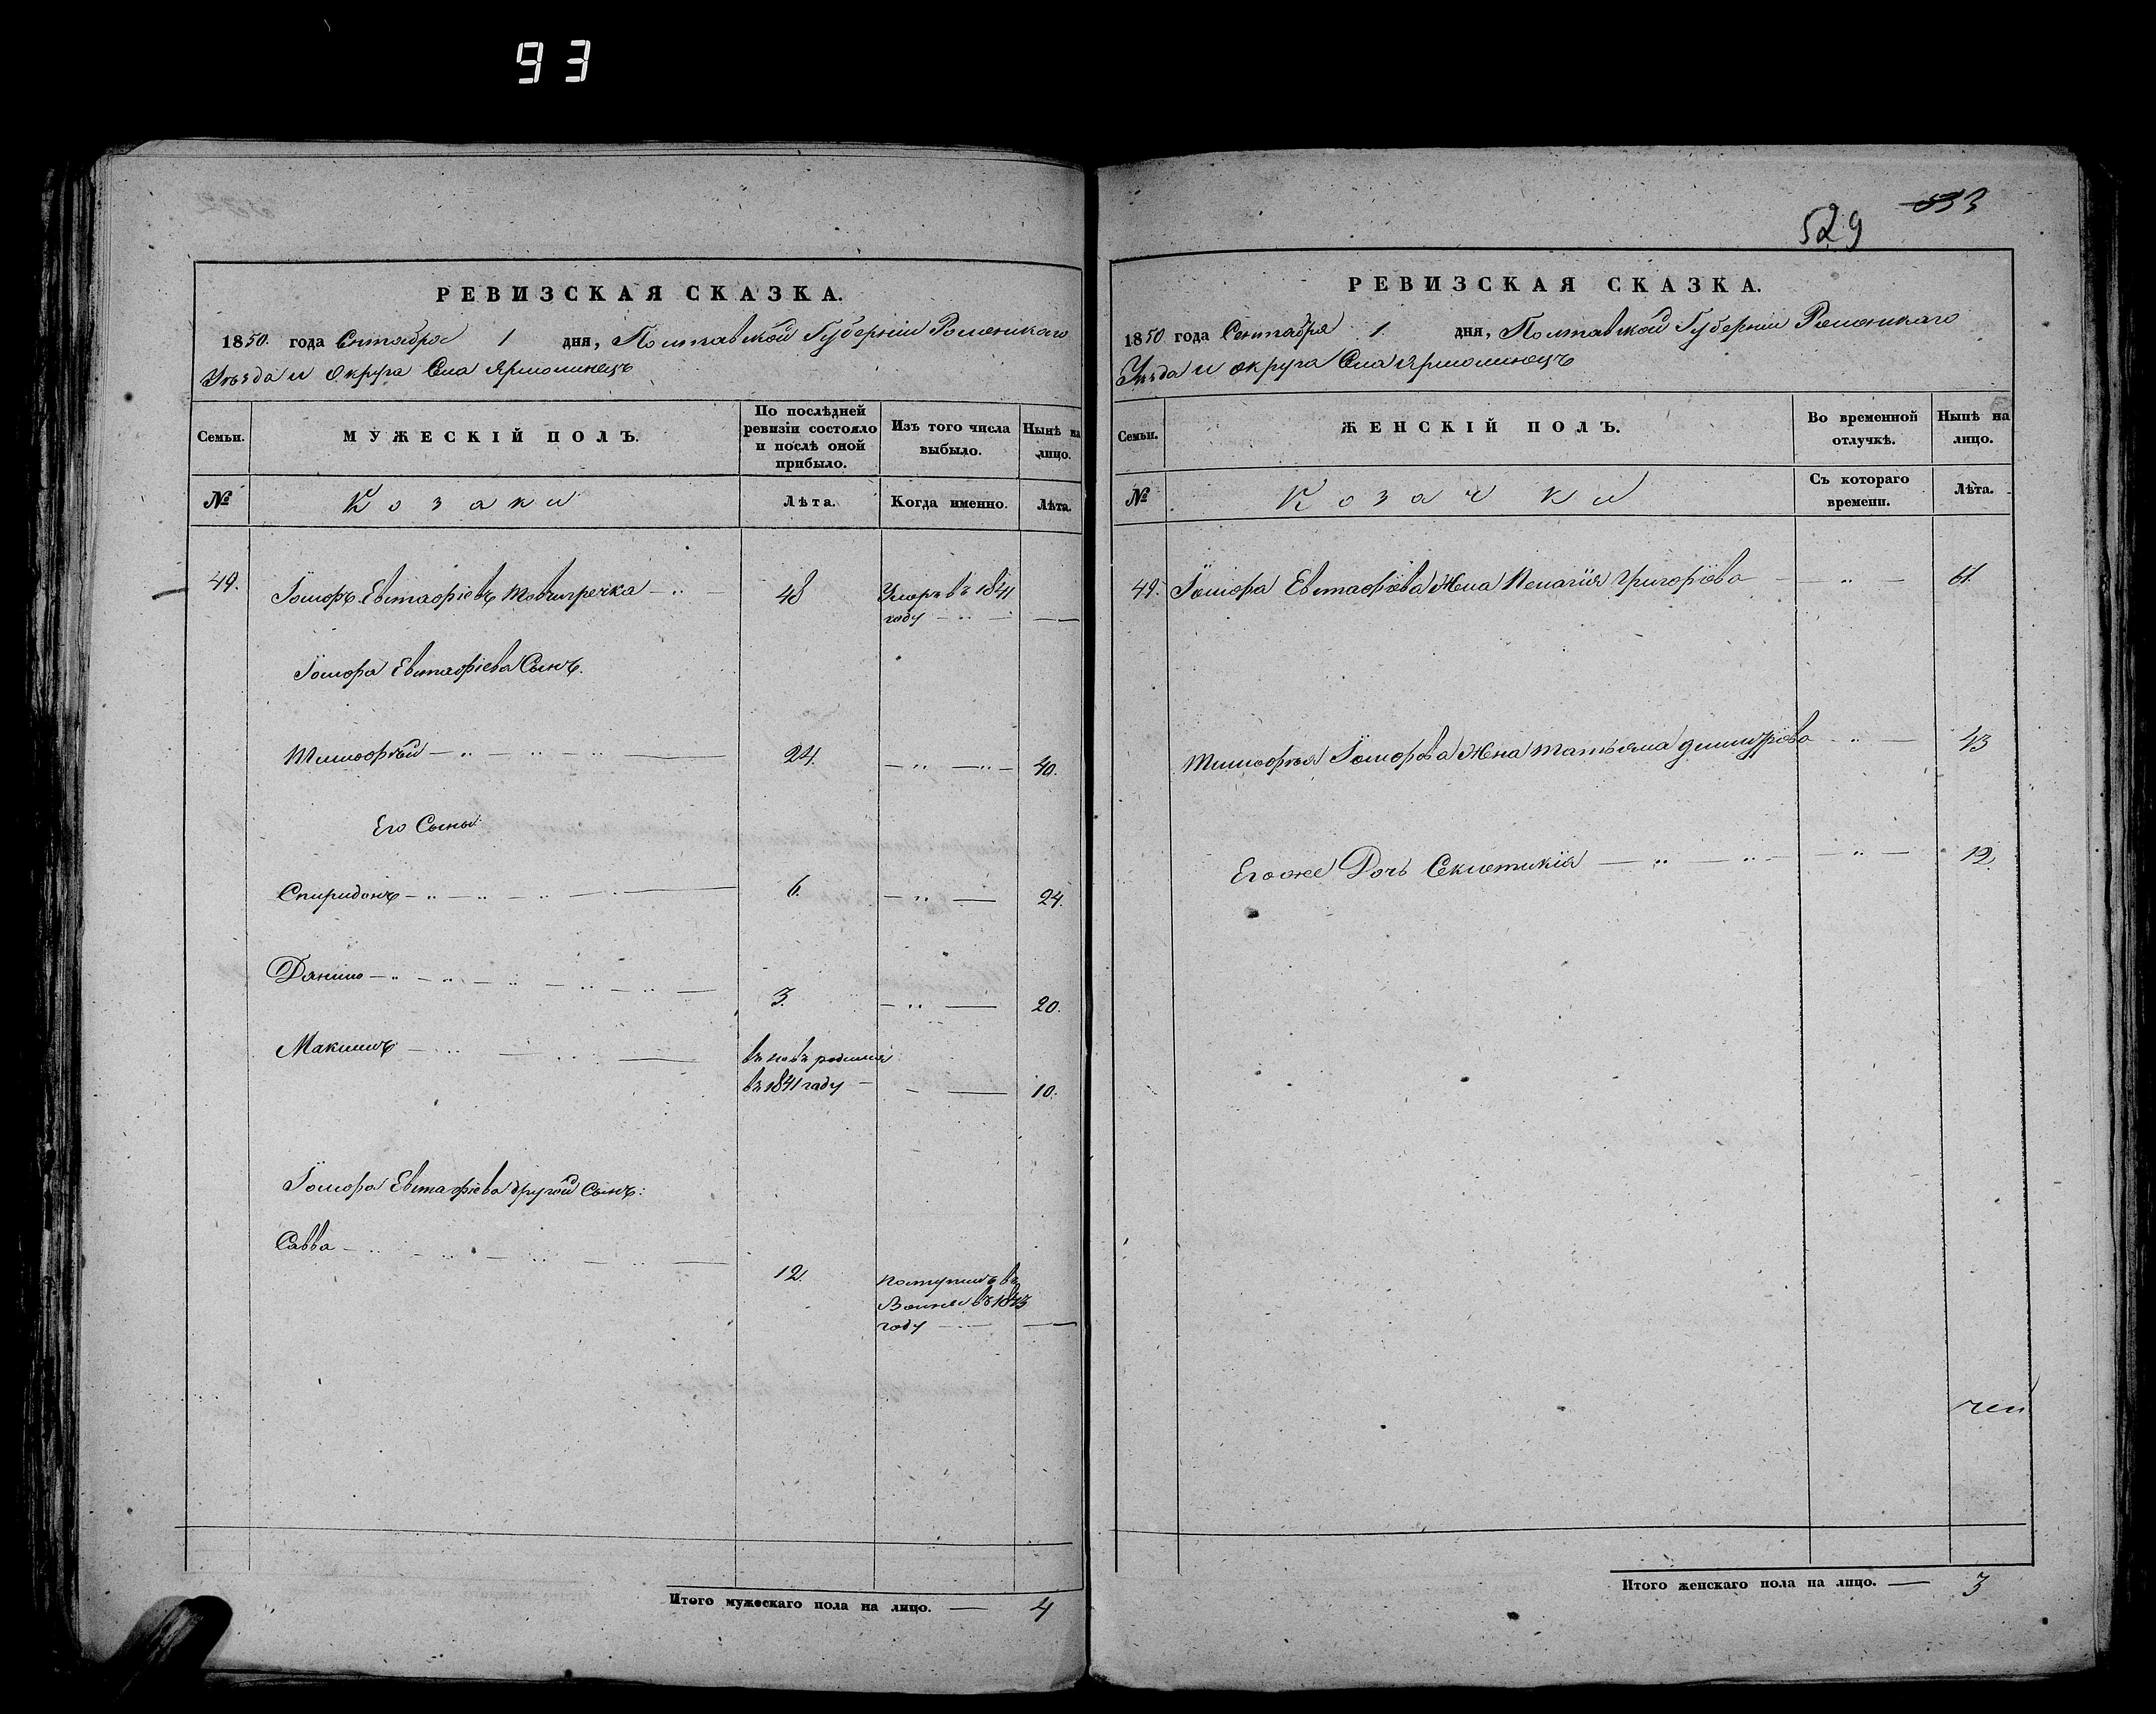 93
РЕВИЗСКАЯ СКАЗКА.
1850. года Сентября 1 дня, Полтавской Губерніи Роменскаго
Уѣзда и округа Села Ярмолинецъ
Семьи.
МУЖЕСКІЙ ПОЛЪ.
По послѣдней ревизіи состояло и послѣ оной прибыло.
Изъ того числа выбыло.
Нынѣ на лицо.
№
Козаки
Лѣта.
Когда именно.
Лѣта.
49. Іосифъ Евстафіевъ 48 Умеръ въ 1841
году
Іосифа Евстафіева Сынъ.
Тимофѣй 24. 40.
Его Сыны
Спиридонъ 6. 24.
Данило 3. 20.
Максимъ въ новъ родился
въ 1841 году 10.
Іосифа Евстафіева другой Сынъ:
Савва 12. поступилъ въ
въ 1843
году
Итого мужескаго пола на лицо. 4
533
529
РЕВИЗСКАЯ СКАЗКА.
1850 года Сентября 1. дня, Полтавской Губерніи Роменскаго
Уѣзда и округа Села Ярмолинецъ
Семьи.
ЖЕНСКІЙ ПОЛЪ.
Во временной отлучкѣ.
Нынѣ на лицо.
№
Козачки
Съ котораго времени.
Лѣта.
49. Іосифа Евстафіева Жена Пелагія Григоріева 61.
Тимофѣя Іосифова Жена Татьяна Димитріева 43
Его же Дочь Секлетикія 12.
Итого женскаго пола на лицо. 3